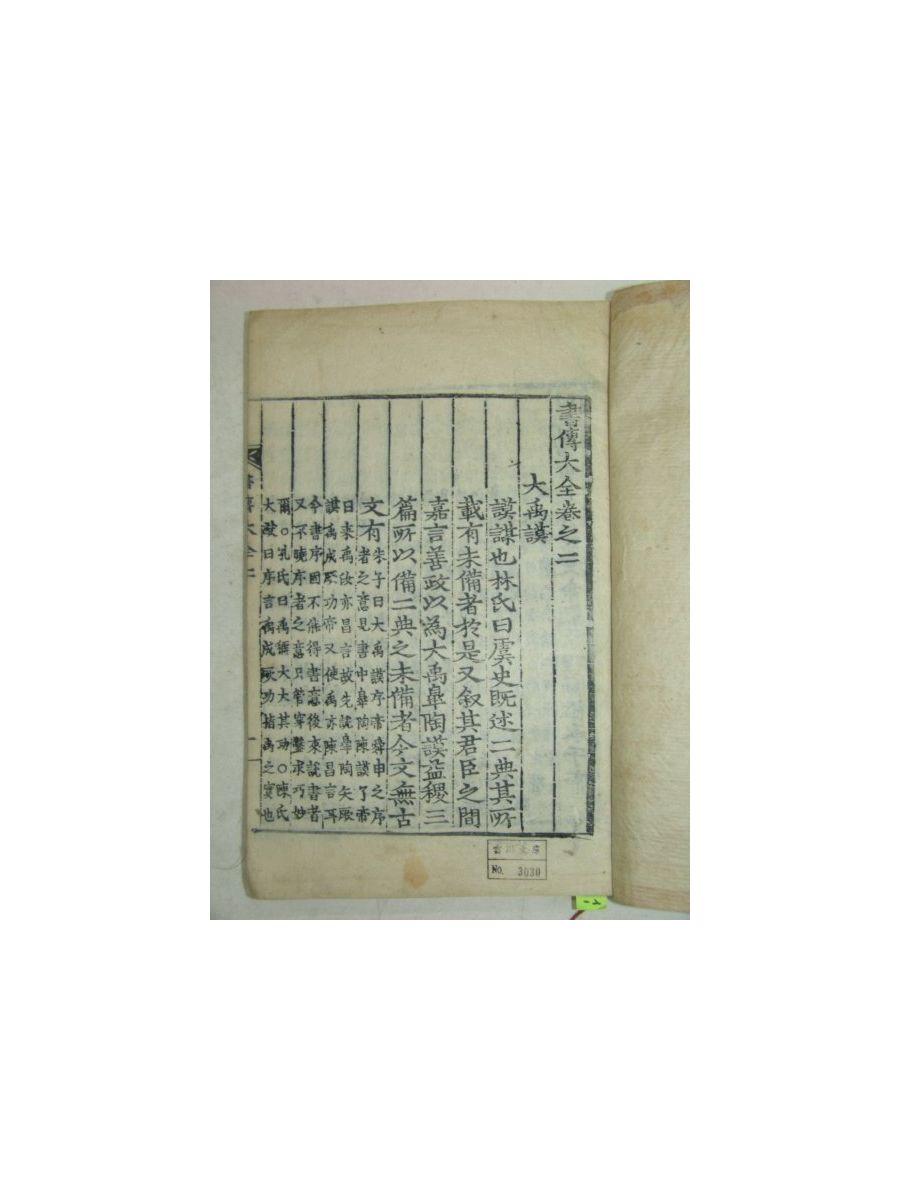 書傳大全卷之二
大禹謨
謨謀也林氏曰虞史既述二典其所
載有未備者於是又叙其君臣之間
嘉言善政以為大禹皐陶謨益稷三
篇所以備二典之未備者今文無古
文有
朱子曰大禹謨序帝舜申之序
者之意見書中皐陶陳謨了帝
曰来禹汝亦昌言故先說皐陶矢厥
謨禹成厥功帝又使禹亦陳昌言耳
今書序固不能得書意後来說書者
又不曉序者之意只管穿鑿求巧妙
爾○孔氏曰禹稱大大其功○陳氏
大猷曰序言禹成厥功指禹之實也
書傳大全二
一
No. 3030